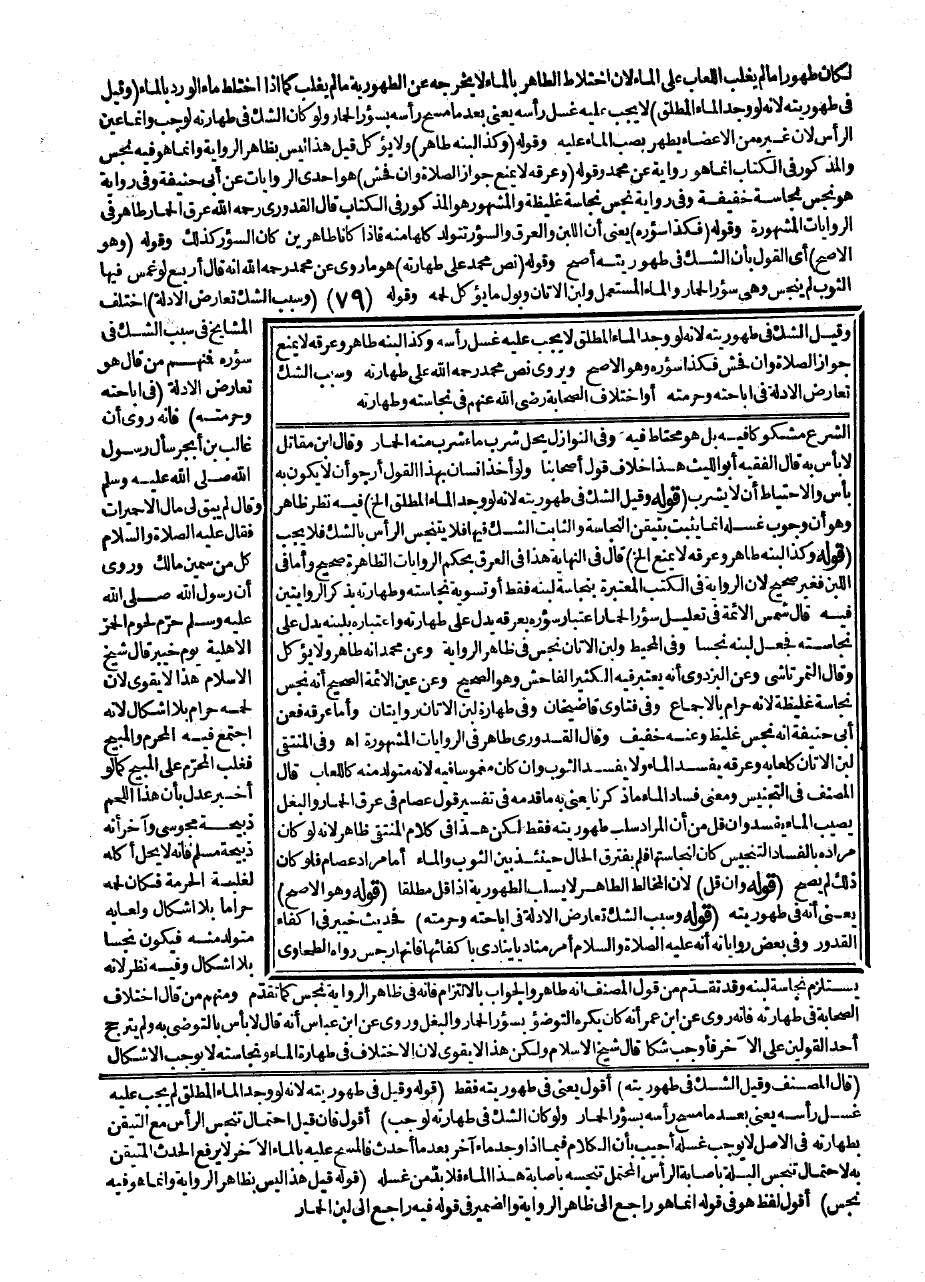 لكان طهورا ما لم يغلب اللعاب على الماء لان اختلاط الطاهر بالماء لا يخرجه عن الطهورية ما لم يغلب كما اذا اختلط ماء الورد بالماء (وقيل
فى طهوريته لانه لو وجد الماء المطلق) لا يجب عليه غسل رأسه يعنى بعد ما مسح رأسه بسؤر الحمار ولو كان الشك فى طهارته لوجب وانما عين
الرأس لان غيره من الاعضاء يطهر بصب الماء عليه وقوله (وكذا لبنه طاهر) ولا يؤكل قيل هذا ليس بظاهر الرواية وانما هو فيه نجس
والمذكور فى الكتاب انما هو رواية عن محمد وقوله (وعرقه لا يمنع جواز الصلاة وان فحش) هو احدى الروايات عن أبى حنيفة وفى رواية
هو نجس نجاسة خفيفة وفى رواية نجس نجاسة غليظة والمشهور هو المذكور فى الكتاب قال القدورى رحمه الله عرق الحمار طاهر فى
الروايات المشهورة وقوله (فكذا سؤره) يعنى أن اللبن والعرق والسؤر تتولد كلها منه فاذا كانا طاهرين كان السؤر كذلك وقوله (وهو
الاصح) أى القول بأن الشك فى طهوريته أصح وقوله (نص محمد على طهارته) هو ما روى عن محمد رحمه الله انه قال أربع لو غمس فيها
الثوب لم ينجس وهى سؤر الحمار والماء المستعمل ولبن الاتان وبول ما يؤكل لحمه وقوله (٧٩) (وسبب الشك تعارض الادلة) اختلف
المشايخ فى سبب الشك فى
سؤره فمنهم من قال هو
تعارض الادلة (فى اباحته
وحرمته) فانه روى أن
غالب بن أبجر سأل رسول
الله صلى الله عليه وسلم
وقال لم يبق لى مال الا حميرات
فقال عليه الصلاة والسلام
كل من سمين مالك وروى
أن رسول الله صلى الله
عليه وسلم حرم لحوم الحمر
الاهلية يوم خيبر قال شيخ
الاسلام هذا لا يقوى لان
لحمه حرام بلا اشكال لانه
اجتمع فيه المحرم والمبيح
فغلب المحرم على المبيح كما لو
أخبر عدل بأن هذا اللحم
ذبيحة مجوسى وآخر أنه
ذبيحة مسلم فانه لا يحل أكله
لغلبة الحرمة فكان لحمه
حراما بلا اشكال ولعابه
متولد منه فيكون نجسا
بلا اشكال وفيه نظر لانه
وقيل الشك فى طهوريته لانه لو وجد الماء المطلق لا يجب عليه غسل رأسه وكذا لبنه طاهر وعرقه لا يمنع
جواز الصلاة وان فحش فكذا سؤره وهو الاصح ويروى نص محمد رحمه الله على طهارته وسبب الشك
تعارض الادلة فى اباحته وحرمته أو اختلاف الصحابة رضى الله عنهم فى نجاسته وطهارته
الشرع مشكوكا فيه بل هو محتاط فيه وفى النوازل يحل شرب ما شرب منه الحمار وقال ابن مقاتل
لا بأس به قال الفقيه أبو الليث هذا خلاف قول أصحابنا ولو أخذ انسان بهذا القول أرجو أن لا يكون به
بأس والاحتياط أن لا يشرب (قوله وقيل الشك فى طهوريته لانه لو وجد الماء المطلق الخ) فيه نظر ظاهر
وهو أن وجوب غسله انما يثبت بتيقن النجاسة والثابت الشك فيها فلا يتنجس الرأس بالشك فلا يجب
(قوله وكذا لبنه طاهر وعرقه لا يمنع الخ) قال فى النهاية هذا فى العرق بحكم الروايات الظاهرة صحيح وأما فى
اللبن فغير صحيح لان الرواية فى الكتب المعتبرة بنجاسة لبنه فقط أو تسوية نجاسته وطهارته بذكر الروايتين
فيه قال شمس الائمة فى تعليل سؤر الحمار اعتبار سؤره بعرقه يدل على طهارته واعتباره بلبنه يدل على
نجاسته فجعل لبنه نجسا وفى المحيط ولبن الاتان نجس فى ظاهر الرواية وعن محمد انه طاهر ولا يؤكل
وقال التمرتاشى وعن البزدوى أنه يعتبر فيه الكثير الفاحش وهو الصحيح وعن عين الائمة الصحيح أنه نجس
نجاسة غليظة لانه حرام بالاجماع وفى فتاوى قاضيخان وفى طهارة لبن الاتان روايتان وأما عرقه فعن
أبى حنيفة انه نجس غليظ وعنه خفيف وقال القدورى طاهر فى الروايات المشهورة اه وفى المنتقى
لبن الاتان كلعابه وعرقه يفسد الماء ولا يفسد الثوب وان كان مغموسا فيه لانه متولد منه كاللعاب قال
المصنف فى التجنيس ومعنى فساد الماء ما ذكرنا يعنى به ما قدمه فى تفسير قول عصام فى عرق الحمار والبغل
يصيب الماء يفسد وان قل من أن المراد سلب طهوريته فقط لكن هذا فى كلام المنتقى ظاهر لانه لو كان
مراده بالفساد التنجيس كان لنجاستها فلم يفترق الحال حينئذ بين الثوب والماء أما مراد عصام فلو كان
ذلك لم يصح (قوله وان قل) لان المخالط الطاهر لا يسلب الطهورية اذا قل مطلقا (قوله وهو الاصح)
يعنى أنه فى طهوريته (قوله وسبب الشك تعارض الادلة فى اباحته وحرمته) فحديث خيبر فى اكفاء
القدور وفى بعض رواياته أنه عليه الصلاة والسلام أمر مناديا ينادى باكفائها فانها رجس رواه الطحاوى
يستلزم نجاسة لبنه وقد تقدم من قول المصنف انه طاهر والجواب بالالتزام فانه فى ظاهر الرواية نجس كما تقدم ومنهم من قال اختلاف
الصحابة فى طهارته فانه روى عن ابن عمر أنه كان يكره التوضؤ بسؤر الحمار والبغل وروى عن ابن عباس أنه قال لا بأس بالتوضى به ولم يترجح
أحد القولين على الآخر فأوجب شكا قال شيخ الاسلام ولكن هذا لا يقوى لان الاختلاف فى طهارة الماء ونجاسته لا يوجب الاشكال
(قال المصنف وقيل الشك فى طهوريته) أقول يعنى فى طهوريته فقط (قوله وقيل فى طهوريته لانه لو وجد الماء المطلق لم يجب عليه
غسل رأسه يعنى بعد ما مسح رأسه بسؤر الحمار ولو كان الشك فى طهارته لوجب) أقول فان قيل احتمال تنجس الرأس مع التيقن
بطهارته فى الاصل لا يوجب غسله أجيب بأن الكلام فيما اذا وجد ماء آخر بعد ما أحدث فالمسح عليه بالماء الآخر لا يرفع الحدث المتيقن
به لاحتمال تنجس البلة باصابة الرأس المحتمل تنجسه باصابة هذا الماء فلا بد من غسله (قوله قيل هذا ليس بظاهر الرواية وانما هو فيه
نجس) أقول لفظ هو فى قوله انما هو راجع الى ظاهر الرواية والضمير فى قوله فيه راجع الى لبن الحمار